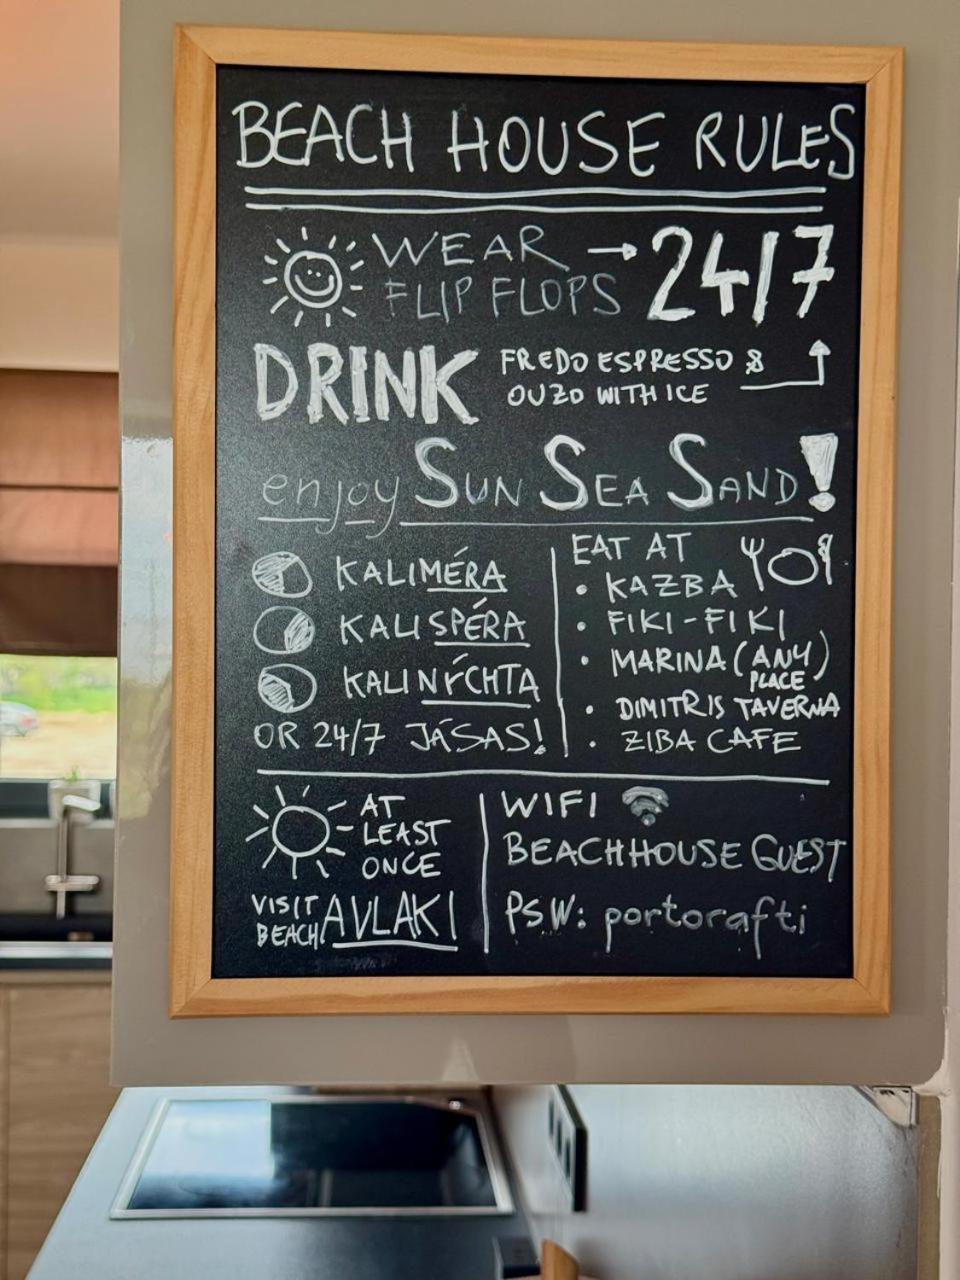 BEACH HOUSE RULES
WEAR → 24/7
FLIP FLOPS
DRINK FREDO ESPRESSO &
OUZO WITH ICE
enjoy SUN SEA SAND!
KALIMÉRA
KALISPÉRA
KALINÝCHTA
OR 24/7 JÁSAS!
EAT AT
• KAZBA
• FIKI-FIKI
• MARINA (ANY
PLACE)
• DIMITRIS TAVERNA
• ZIBA CAFE
AT
LEAST
ONCE
VISIT
BEACH AVLAKI
WIFI
BEACHHOUSE GUEST
PSW: portorafti